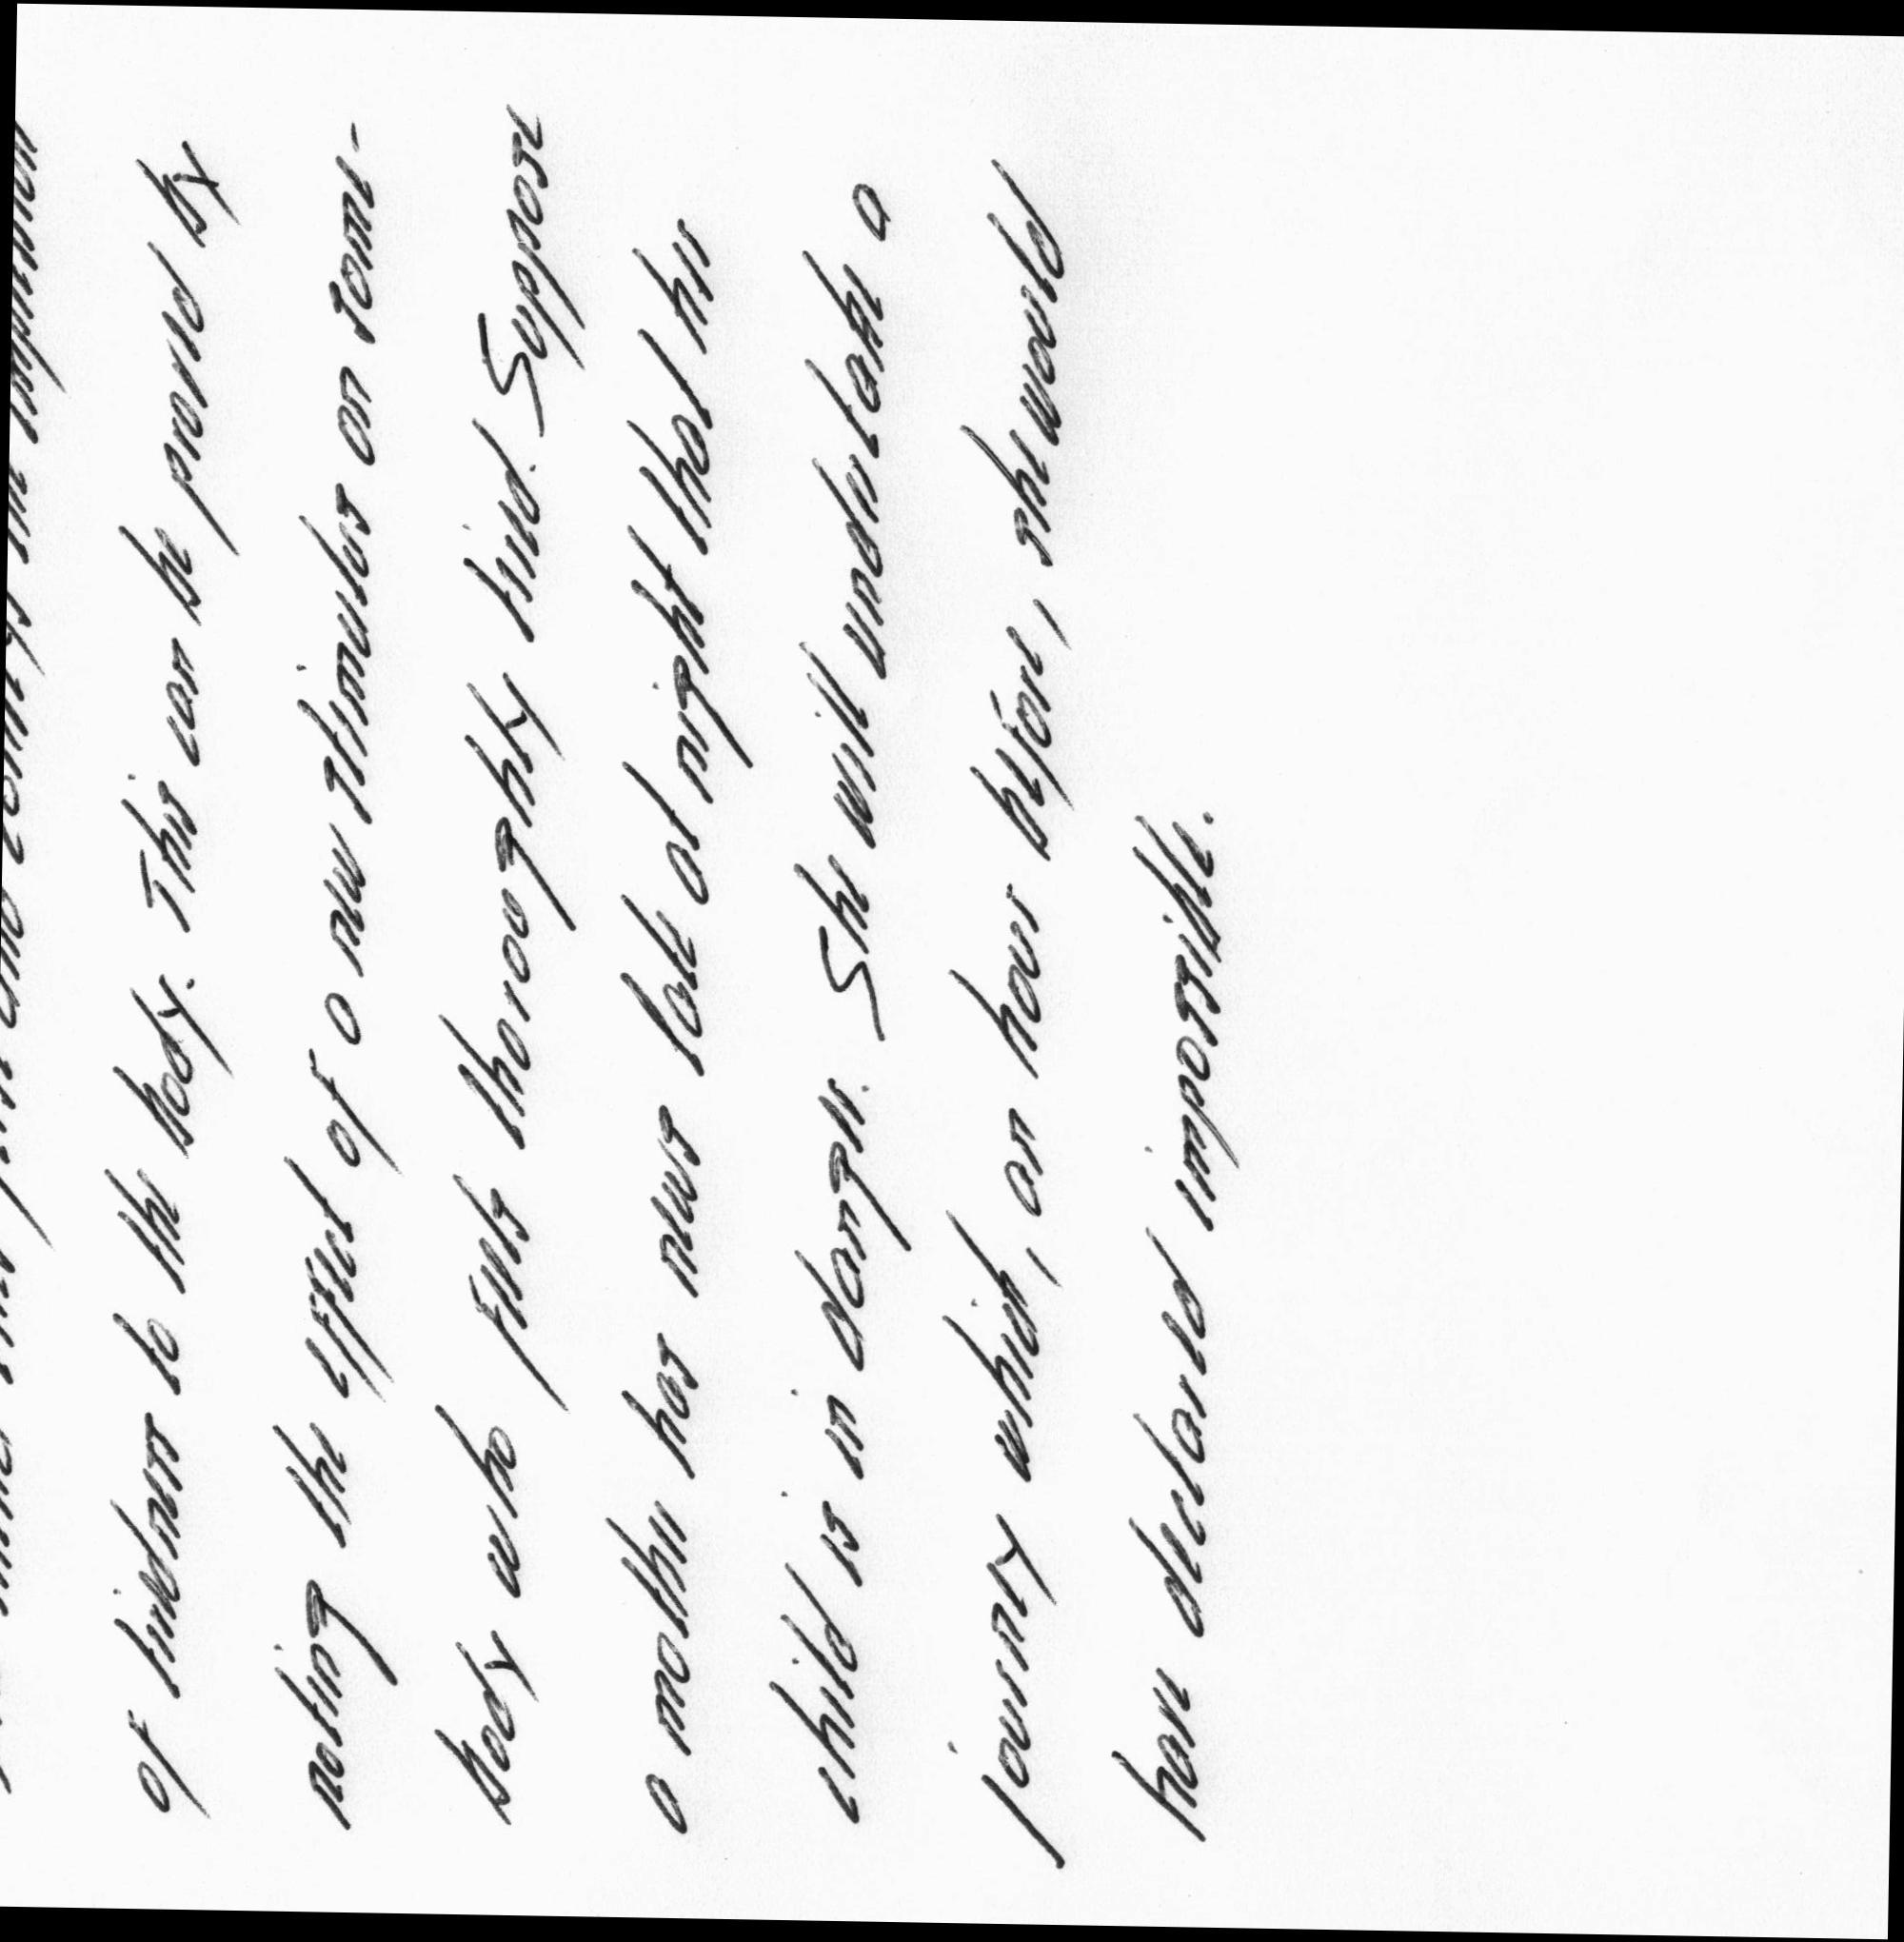 of tiredness to the body. This can be proved by
noting the effect of a new stimulus on some-
body who feels thoroughly tired. Suppose
a mother has news late at night that his
child is in danger. She will undertake a
journey which, an hour before, she would
have declared impossible.